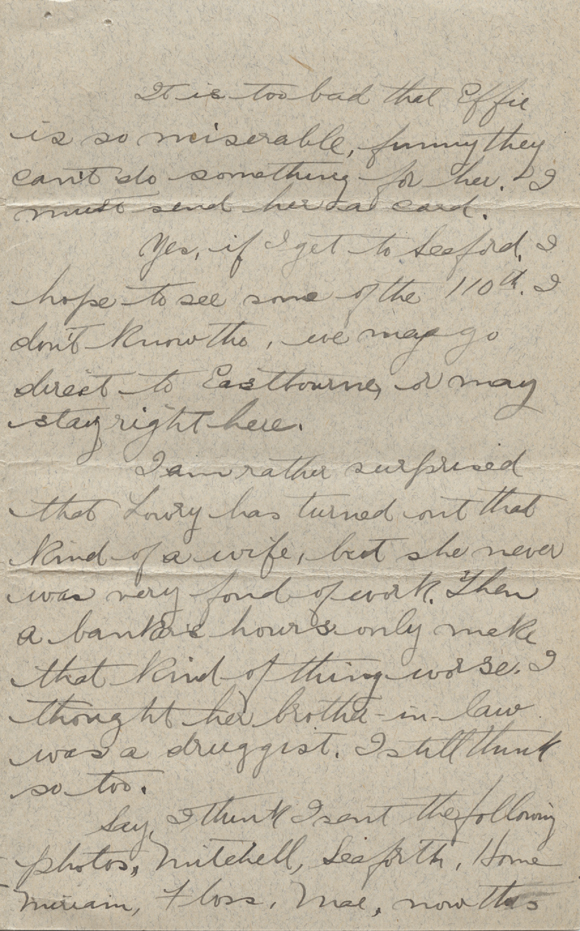 It is too bad that Effie
is so miserable, funny they
can't do something for her. I
must send her a card.
Yes, if I get to Seaford, I
hope to see some of the 110th. I
don't know tho, we may go
direct to Eastbourne, or may
stay right here.
I am rather surprised
that Lowry has turned out that
kind of a wife, but she never
was very fond of work. Then
a banker's hours only make
that kind of thing worse. I
thought her brother-in-law
was a druggist. I still think
so too.
Say, I think I sent the following
photos, Mitchell, Seaforth, Home
Miriam, Floss, Mae, now this